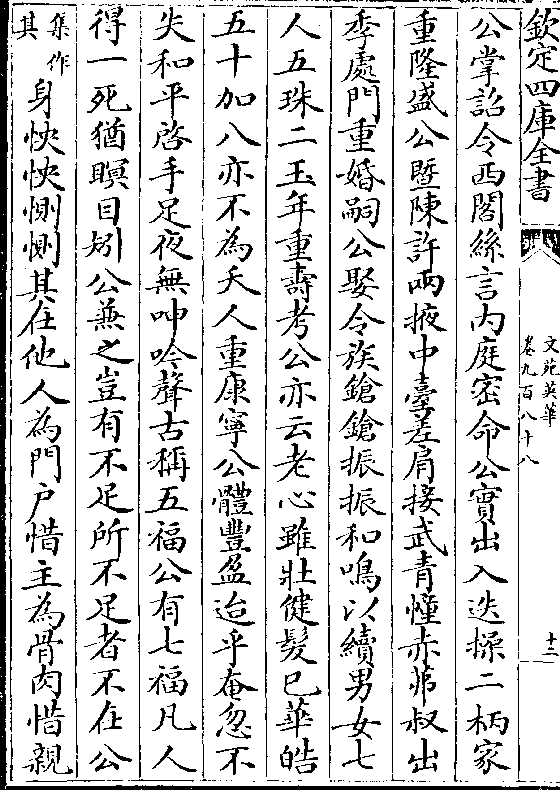 欽定四庫全書
文苑英華
卷九百八十八
十三
公掌詔令西閣絲言内庭密命公實出入迭操二柄家
重隆盛公暨陳許兩掖中臺差肩接武青幢赤茀叔出
季處門重婚嗣公娶令族鎗鎗振振和鳴以續男女七
人五珠二玉年重壽考公亦云老心雖壯健髪已華皓
五十加八亦不為夭人重康寧公體豐盈迨乎奄忽不
失和平啓手足夜無呻吟聲古稱五福公有七福凡人
得一死猶瞑目矧公兼之豈有不足所不足者不在公
集作其
身怏怏惻惻其在他人為門户惜主為骨肉惜親